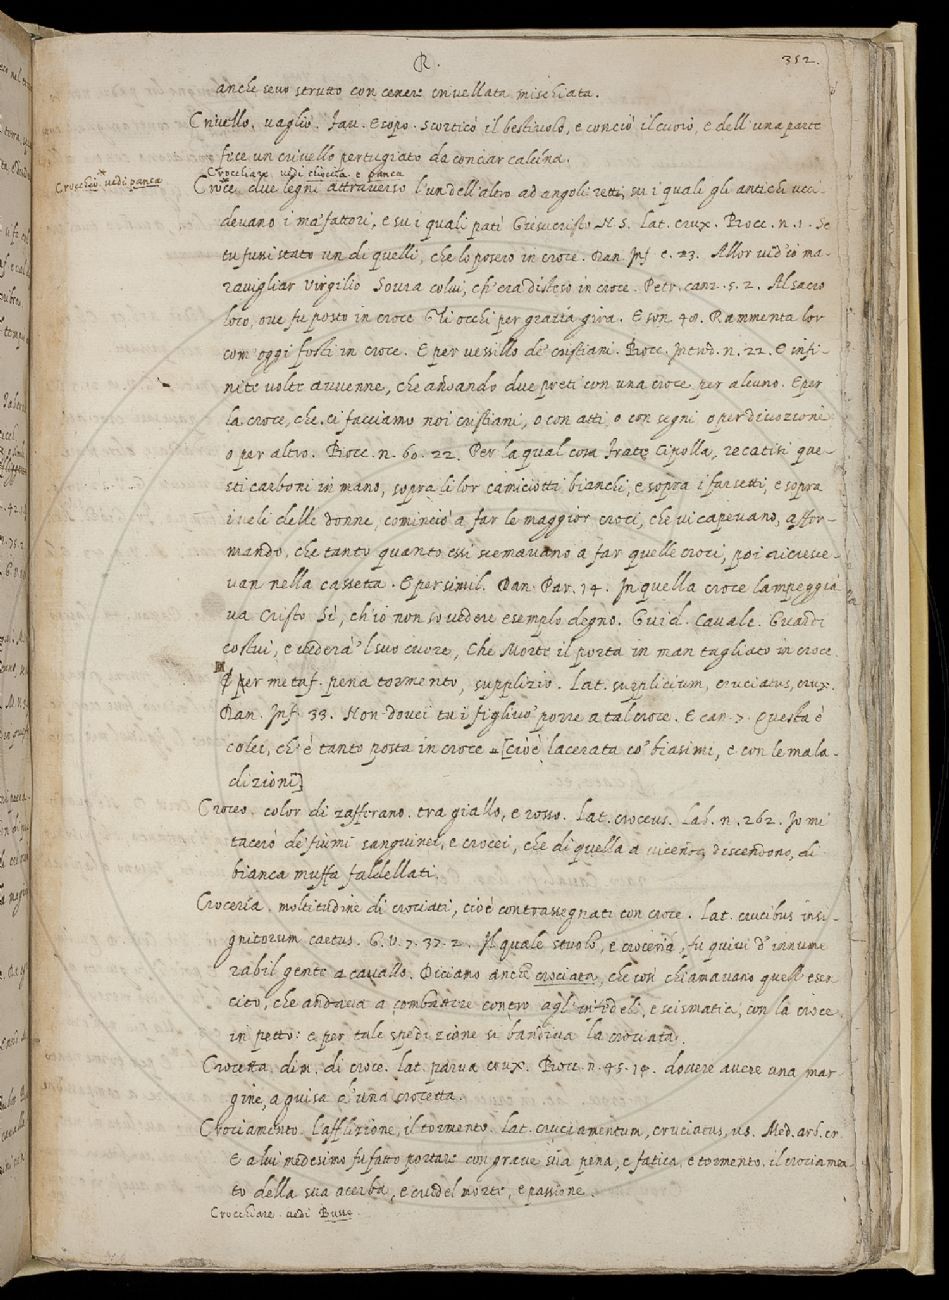 R.
352.
anche sevo strutto con cenere invellata mischiata.
Crivello. vaglio. Fav. Esopo. Scorticò il bestiuolo, e conciò il cuoio, e dell'una parte
fece un crivello pertugiato da conciar calcina.
Crocchiare vedi chioccia e panca
Crocchio vedi panca
Croce. due legni attraverso l'un dell'altro ad angoli retti, su i quali gli antichi ucci-
devano i malfattori, e su i quali patì Giesucristo N. S. Lat. crux. Bocc. n. 1. Se
tu fussi stato un di quelli, che lo posero in croce. Dan. Inf. c. 23. Allor vid'io ma-
ravigliar Virgilio Soura colui, ch'era disteso in croce. Petr. canz. 5. 2. Al sacro
loco, ove fu posto in croce Gli occhi per grazia gira. E son. 48. Rammenta lor
com'oggi fosti in croce. E per vessillo de' cristiani. Bocc. Introd. n. 22. E infi-
nite volte avvenne, che andando due preti con una croce per alcuno. E per
la croce, che ci facciamo noi cristiani, o con atti, o con segni o per divozione
o per altro. Bocc. n. 60. 22. Per la qual cosa Frate Cipolla, recatisi que-
sti carboni in mano, sopra li lor camiciotti bianchi, e sopra i farsetti, e sopra
i veli delle donne, cominciò a far le maggior croci, che vi capevano, affer-
mando, che tanto quanto essi scemavano a far quelle croci, poi ricresce-
van nella cassetta. E per simil. Dan. Par. 14. In quella croce lampeggia
va Cristo Sì, ch'io non so vedere esemplo degno. Guid. Cavalc. Guardi
costui, e vederà 'l suo cuore, Che Morte il porta in man tagliato in croce.
per metaf. pena tormento, supplizio. Lat. supplicium, cruciatus, crux.
Dan. Inf. 33. Non dovei tu i figliuo' porre a tal croce. E can. 7. Questa è
colei, ch'è tanto posta in croce [cioè lacerata co' biasimi, e con le mala-
dizioni]
Croceo. color di zafferano. tra giallo, e rosso. Lat. croceus. Lab. n. 262. Io mi
tacerò de' fiumi sanguinei, e crocei, che di quella a vicenda discendono, di
bianca muffa faldellati.
Croceria. moltitudine di crociati, cioè contrassegnati con croce. Lat. crucibus insi-
gnitorum caetus. G. V. 7. 37. 2. Il quale stuolo, e croceria, fu quivi d'innume
rabil gente a cavallo. Diciamo anche crociata, che così chiamavano quell'eser
cito, che andava a combattere contro agl'infideli, e scismatici, con la croce
in petto: e per tale spedizione si bandiva la crociata.
Crocetta. dim. di croce. Lat. parva crux. Bocc. n. 45. 14. dovere avere una mar-
gine, a guisa d'una crocetta.
Crociamento. l'afflizione, il tormento. Lat. cruciamentum, cruciatus, us. Med. arb. cr.
E a lui medesimo fu fatto portare con grave sua pena, e fatica, e tormento. il crociamen
to della sua acerba, e crudel morte, e passione.
Crocchiare vedi Busse.